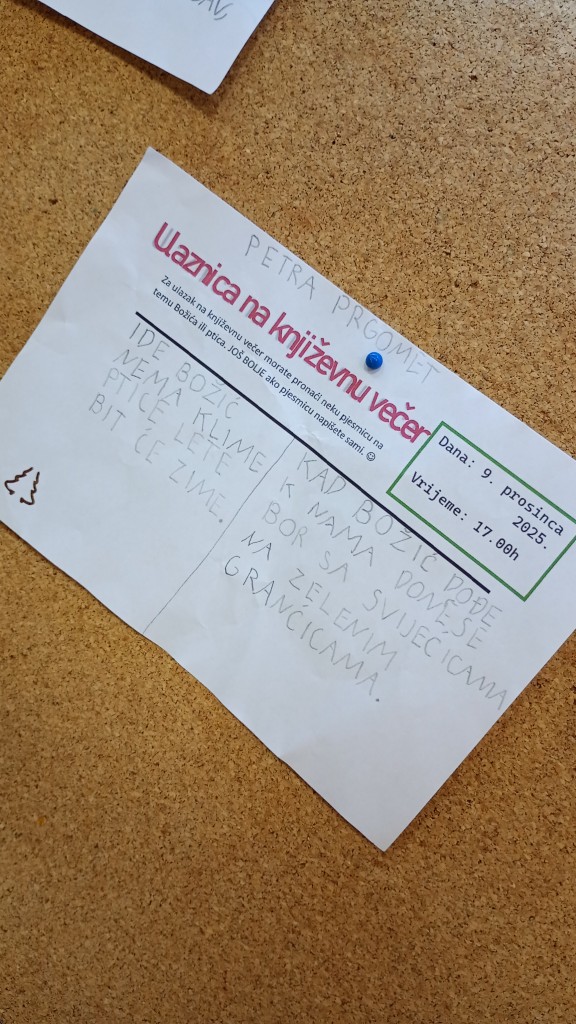 AV,
PETRA PRGOMET
Ulaznica na književnu večer
Za ulazak na književnu večer morate pronaći neku pjesmicu na
temu Božića ili ptica. JOŠ BOLJE ako pjesmicu napišete sami. ☺
Dana: 9. prosinca
2025.
Vrijeme: 17.00h
IDE BOŽIĆ
NEMA KLIME
PTICE LETE
BIT ĆE ZIME.
KAD BOŽIĆ DOĐE
K NAMA DONESE
BOR SA SVIJEĆICAMA
NA ZELENIM
GRANČICAMA.